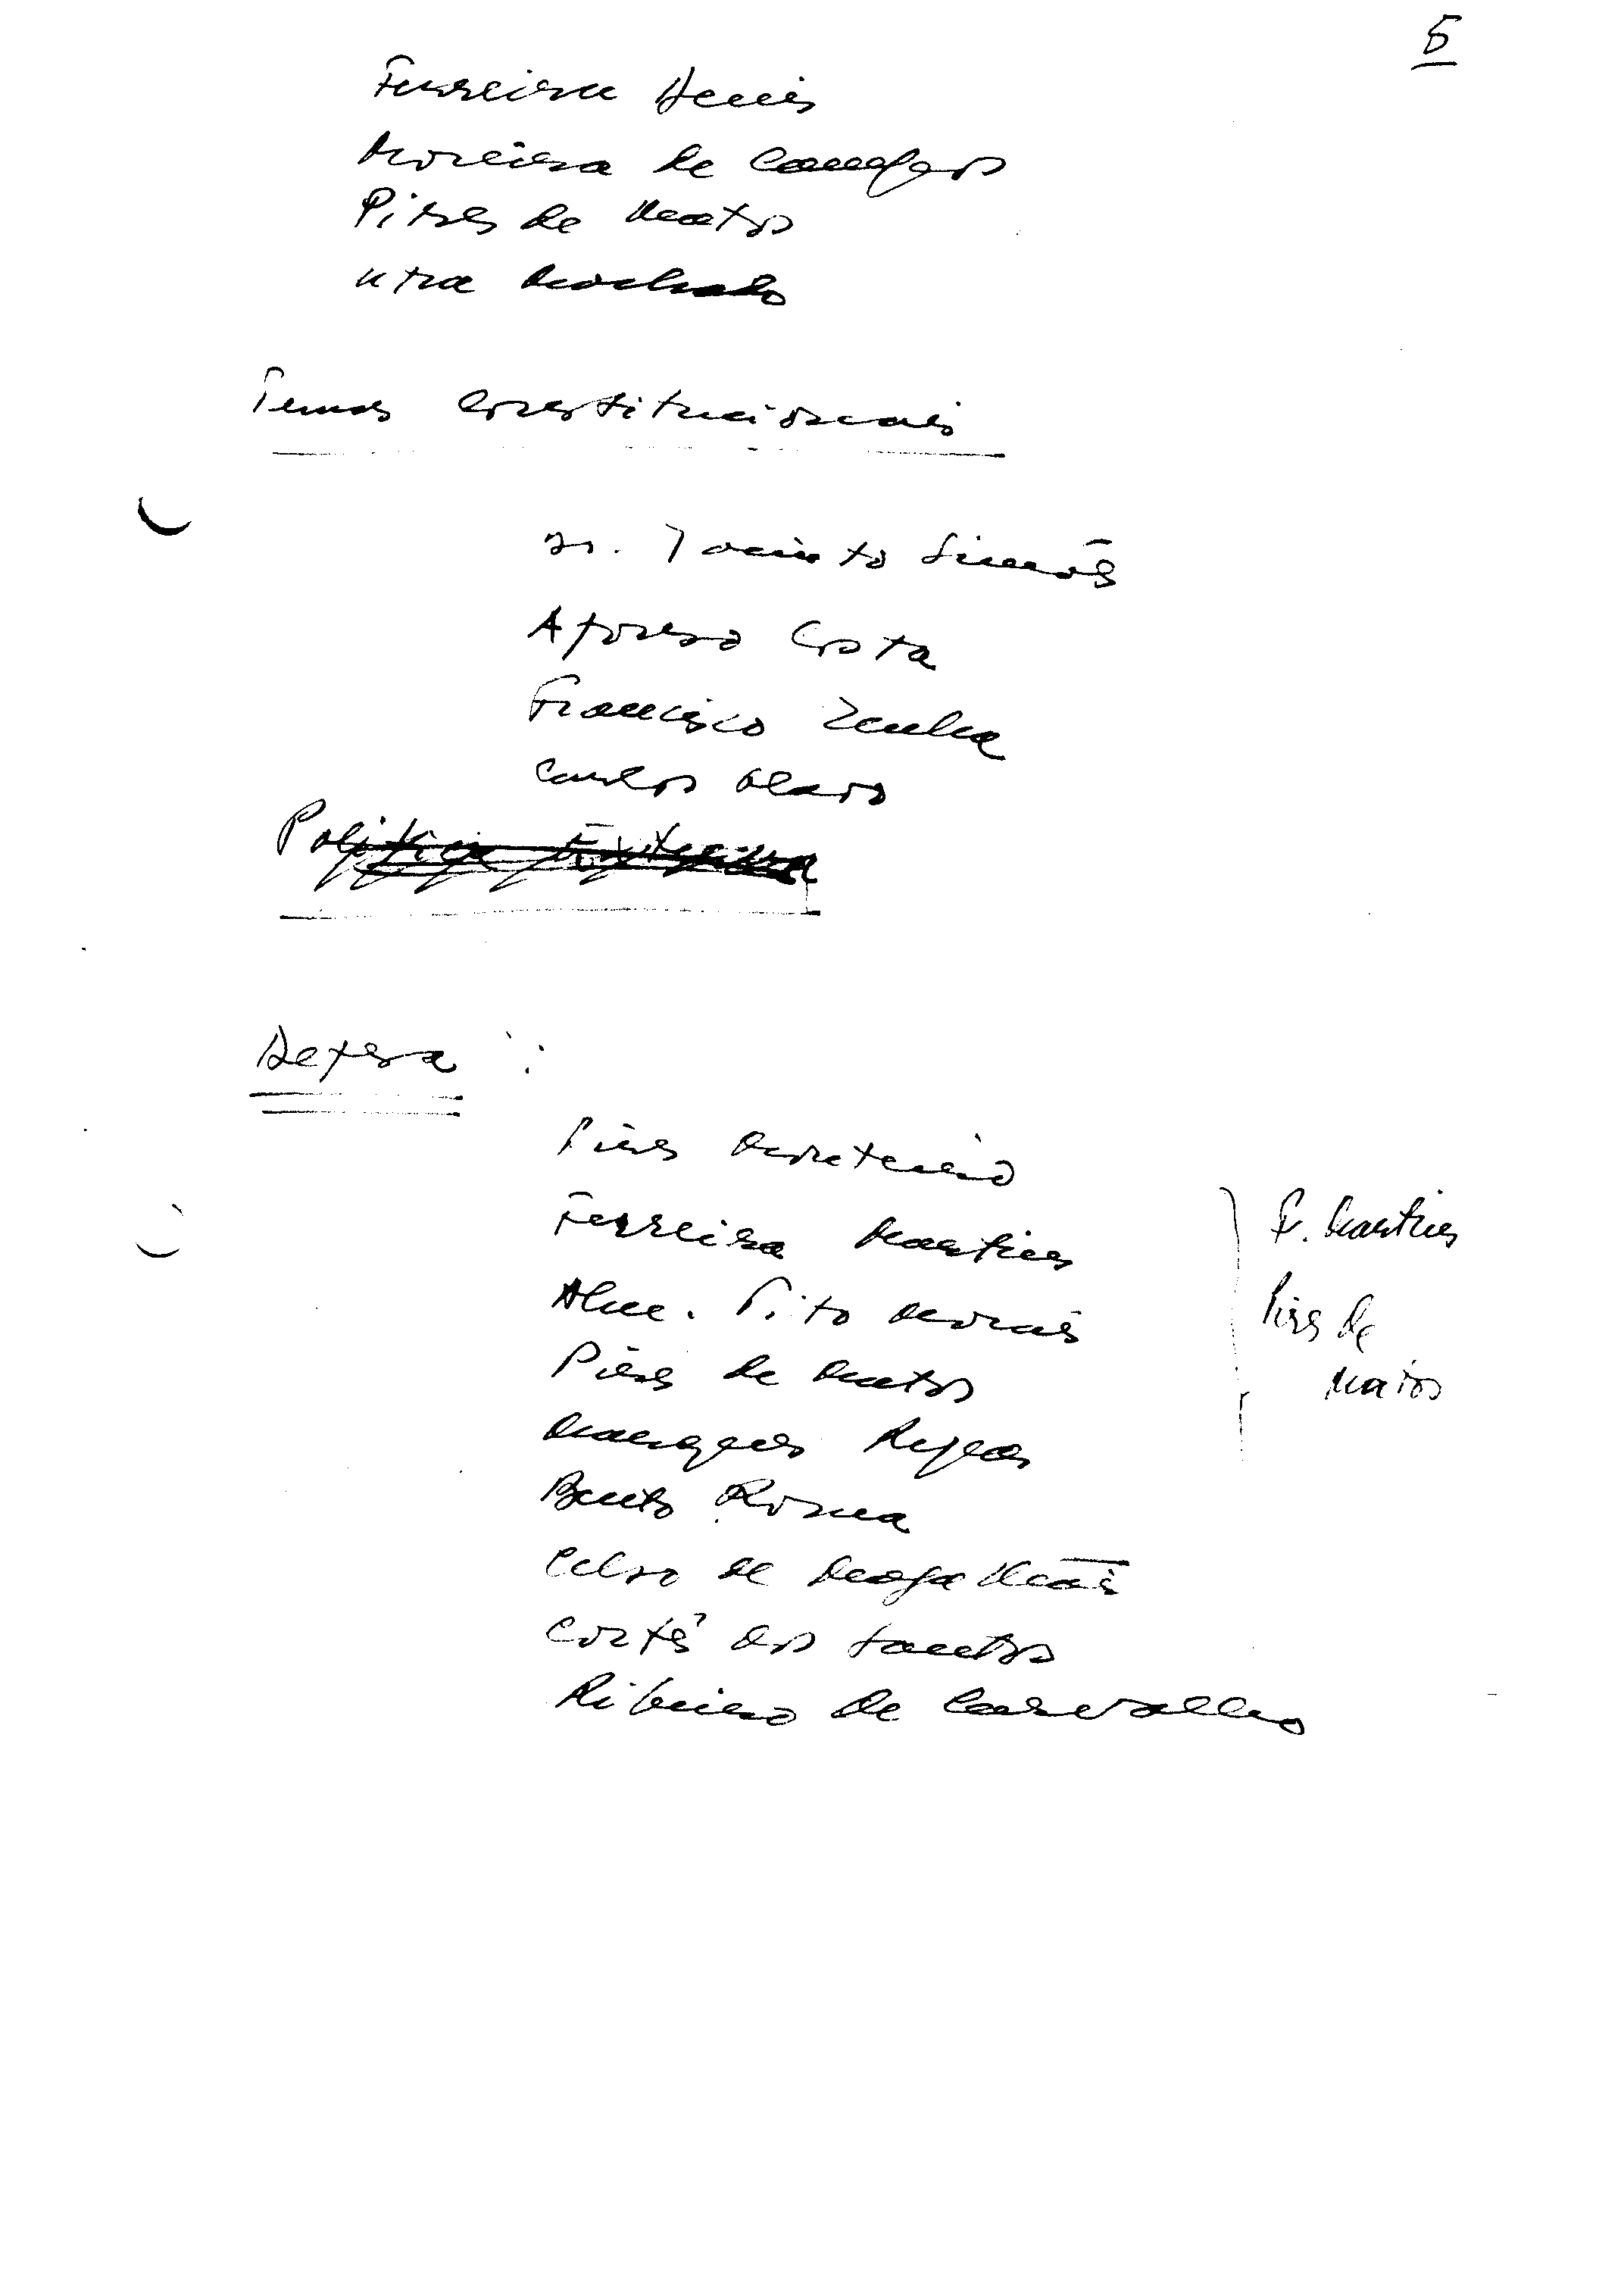 5
Ferreira Dinis
Moreira de Campos
Pires de Matos
Utra Machado
Temas Constitucionais
Dr. Jacinto Simões
Afonso Costa
Francisco Zenha
Carlos
Política Externa
Defesa :
Pires Monteiro
Ferreira Martins
Alm. Tito Morais
Pires de Matos
Marques Repas
Bento Roma
Celso de Magalhães
Cortês dos Santos
Ribeiro de Carvalho
F. Martins
Pires de
Matos